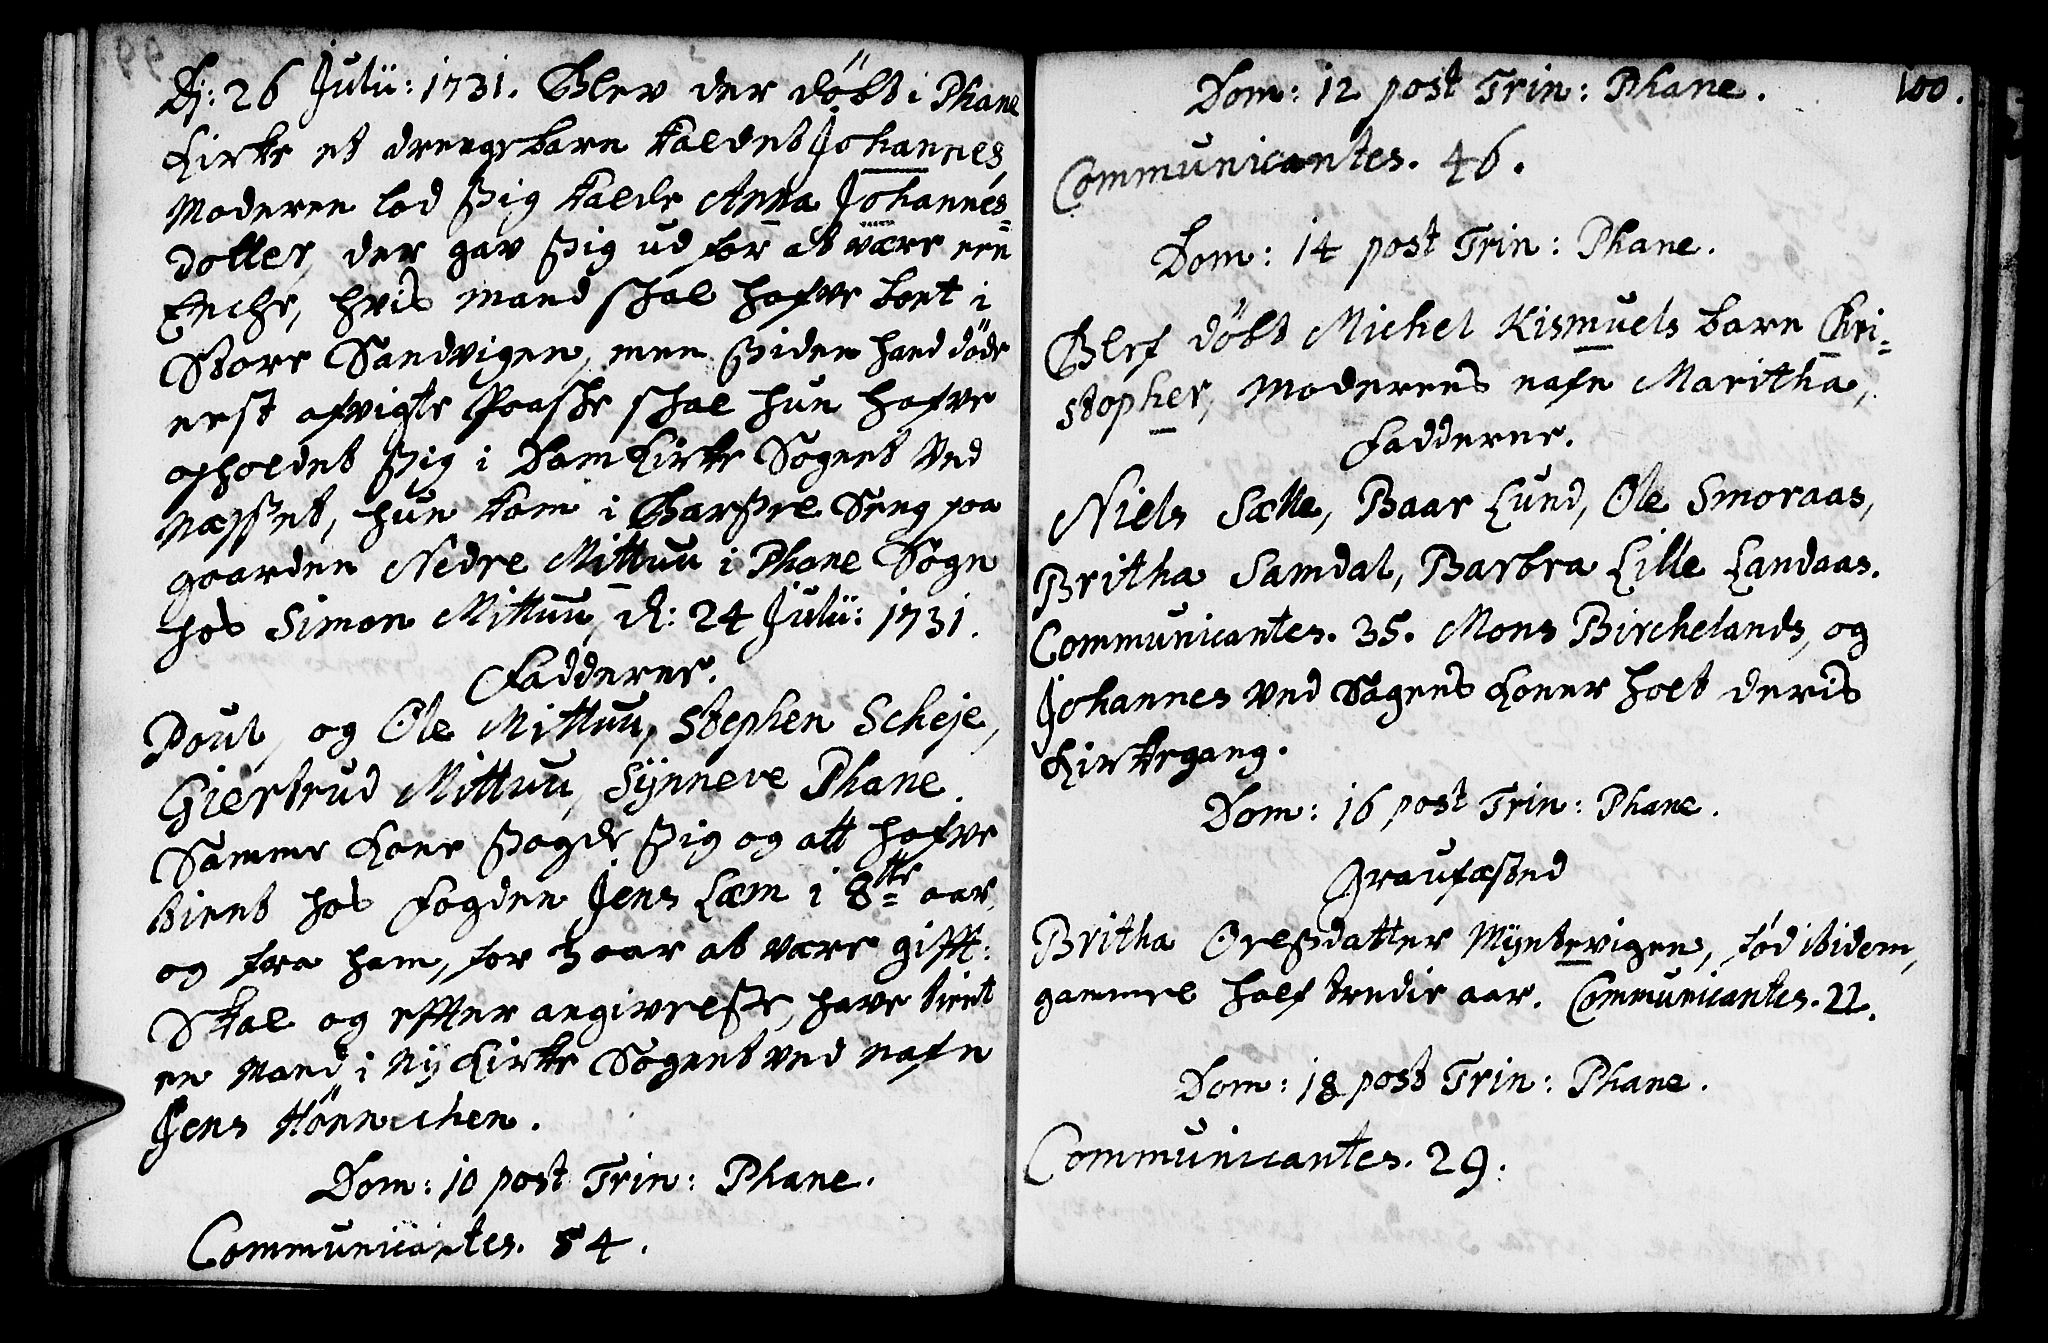 D: 26 Julii: 1731. Blev der döbt i Phane
Kirke et drenge barn kaldet Johannes,
Moderen lod sig kalde Anna Johannes=
dotter, der gav sig ud for at være een
Enche, hvis mand skal hafve boet i
Store Sandvigen, men siden hand döde
nest afvigte Paaske skal hun hafve
opholdet sig i Dom Kirke Sognet ved
Næsset, hun kom i Barsel Seng paa
gaarden Nedre Mittuu i Phane Sogn
hos Simon Mittuu, d: 24 Julii: 1731.
Fadderne.
Poul, og Ole Mittuu, Stephen Scheje,
Giertrud Mittuu, Synneve Phane.
Samme Kone sagde sig og att hafve
tient hos Fogden Jens Læm i 8tte aar,
og fra ham, for 3 aar at være gifft:
Skal og effter angivelse, have tient
en Mand i Ny Kirke Sognet ved nafn
Jens Hönnichen.
Dom: 10 post Trin: Phane.
Communicantes. 54.
100.
Dom: 12 post Trin: Phane.
Communicantes. 46.
Dom: 14 post Trin: Phane.
Blef döbt Michel Kismuels barn Chri=
stopher, Moderens nafn Maritha,
Fadderne.
Niels Sælle, Baar Lund, Ole Smoraas,
Britha Samdal, Barbra Lille Landaas.
Communicantes. 35. Mons Birchelands, og
Johannes ved Sagens Koner holt deris
Kirkegang.
Dom: 16 post Trin: Phane.
Graufæsted
Britha Olesdatter Myntevigen, föd ibidem,
gammel half tredie aar. Communicantes. 22.
Dom: 18 post Trin: Phane.
Communicantes. 29.